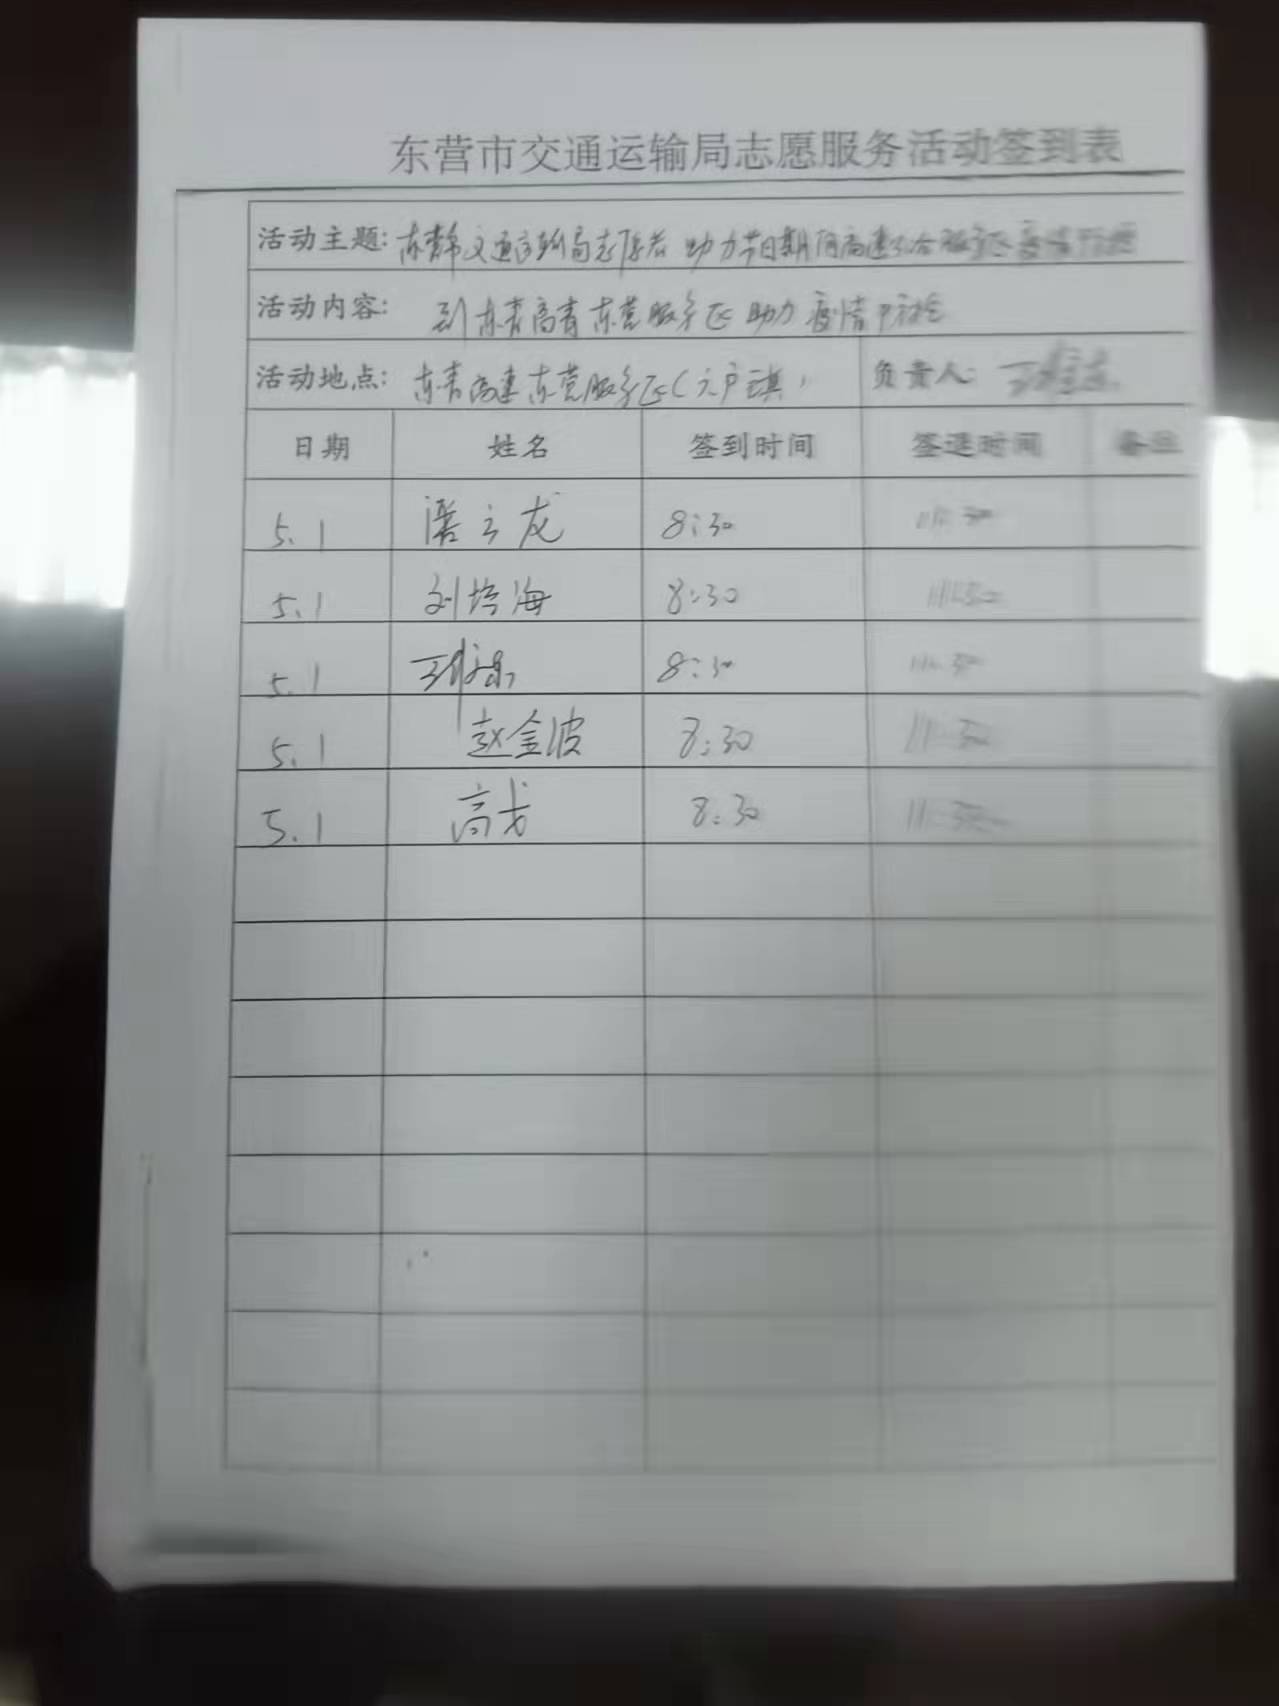 东营市交通运输局志愿服务活动签到表
活动主题: 东营市交通运输局志愿者 助力节日期间高速公路服务区疫情防控
活动内容: 到东青高青东营服务区助力疫情防控
活动地点: 东青高速东营服务区( 负责人:
日期 姓名 签到时间 签退时间 备注
5.1 潘云龙 8:30 11:30
5.1 刘培海 8:30 11:30
5.1 8:30 11:30
5.1 赵金波 8:30 11:30
5.1 高戈 8:30 11:30